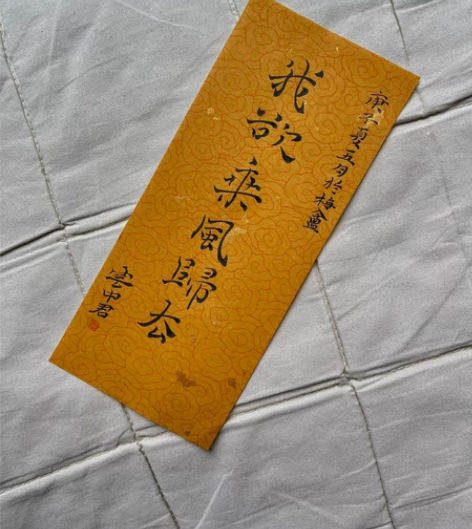 庚子夏五月於梅盦
我欲乘風歸去
雲中君